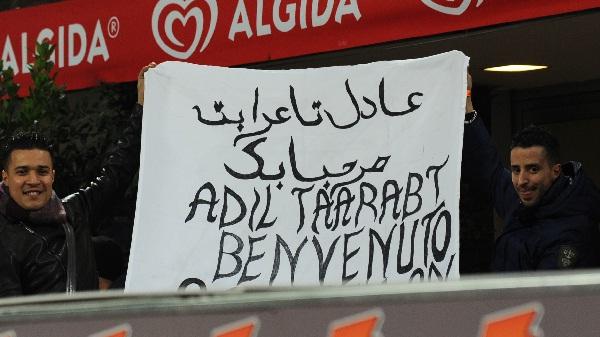 ALGIDA®
ALGIDA
عادل تاعرابت
مرحبا بك
ADIL TAARABT
BENVENUTO